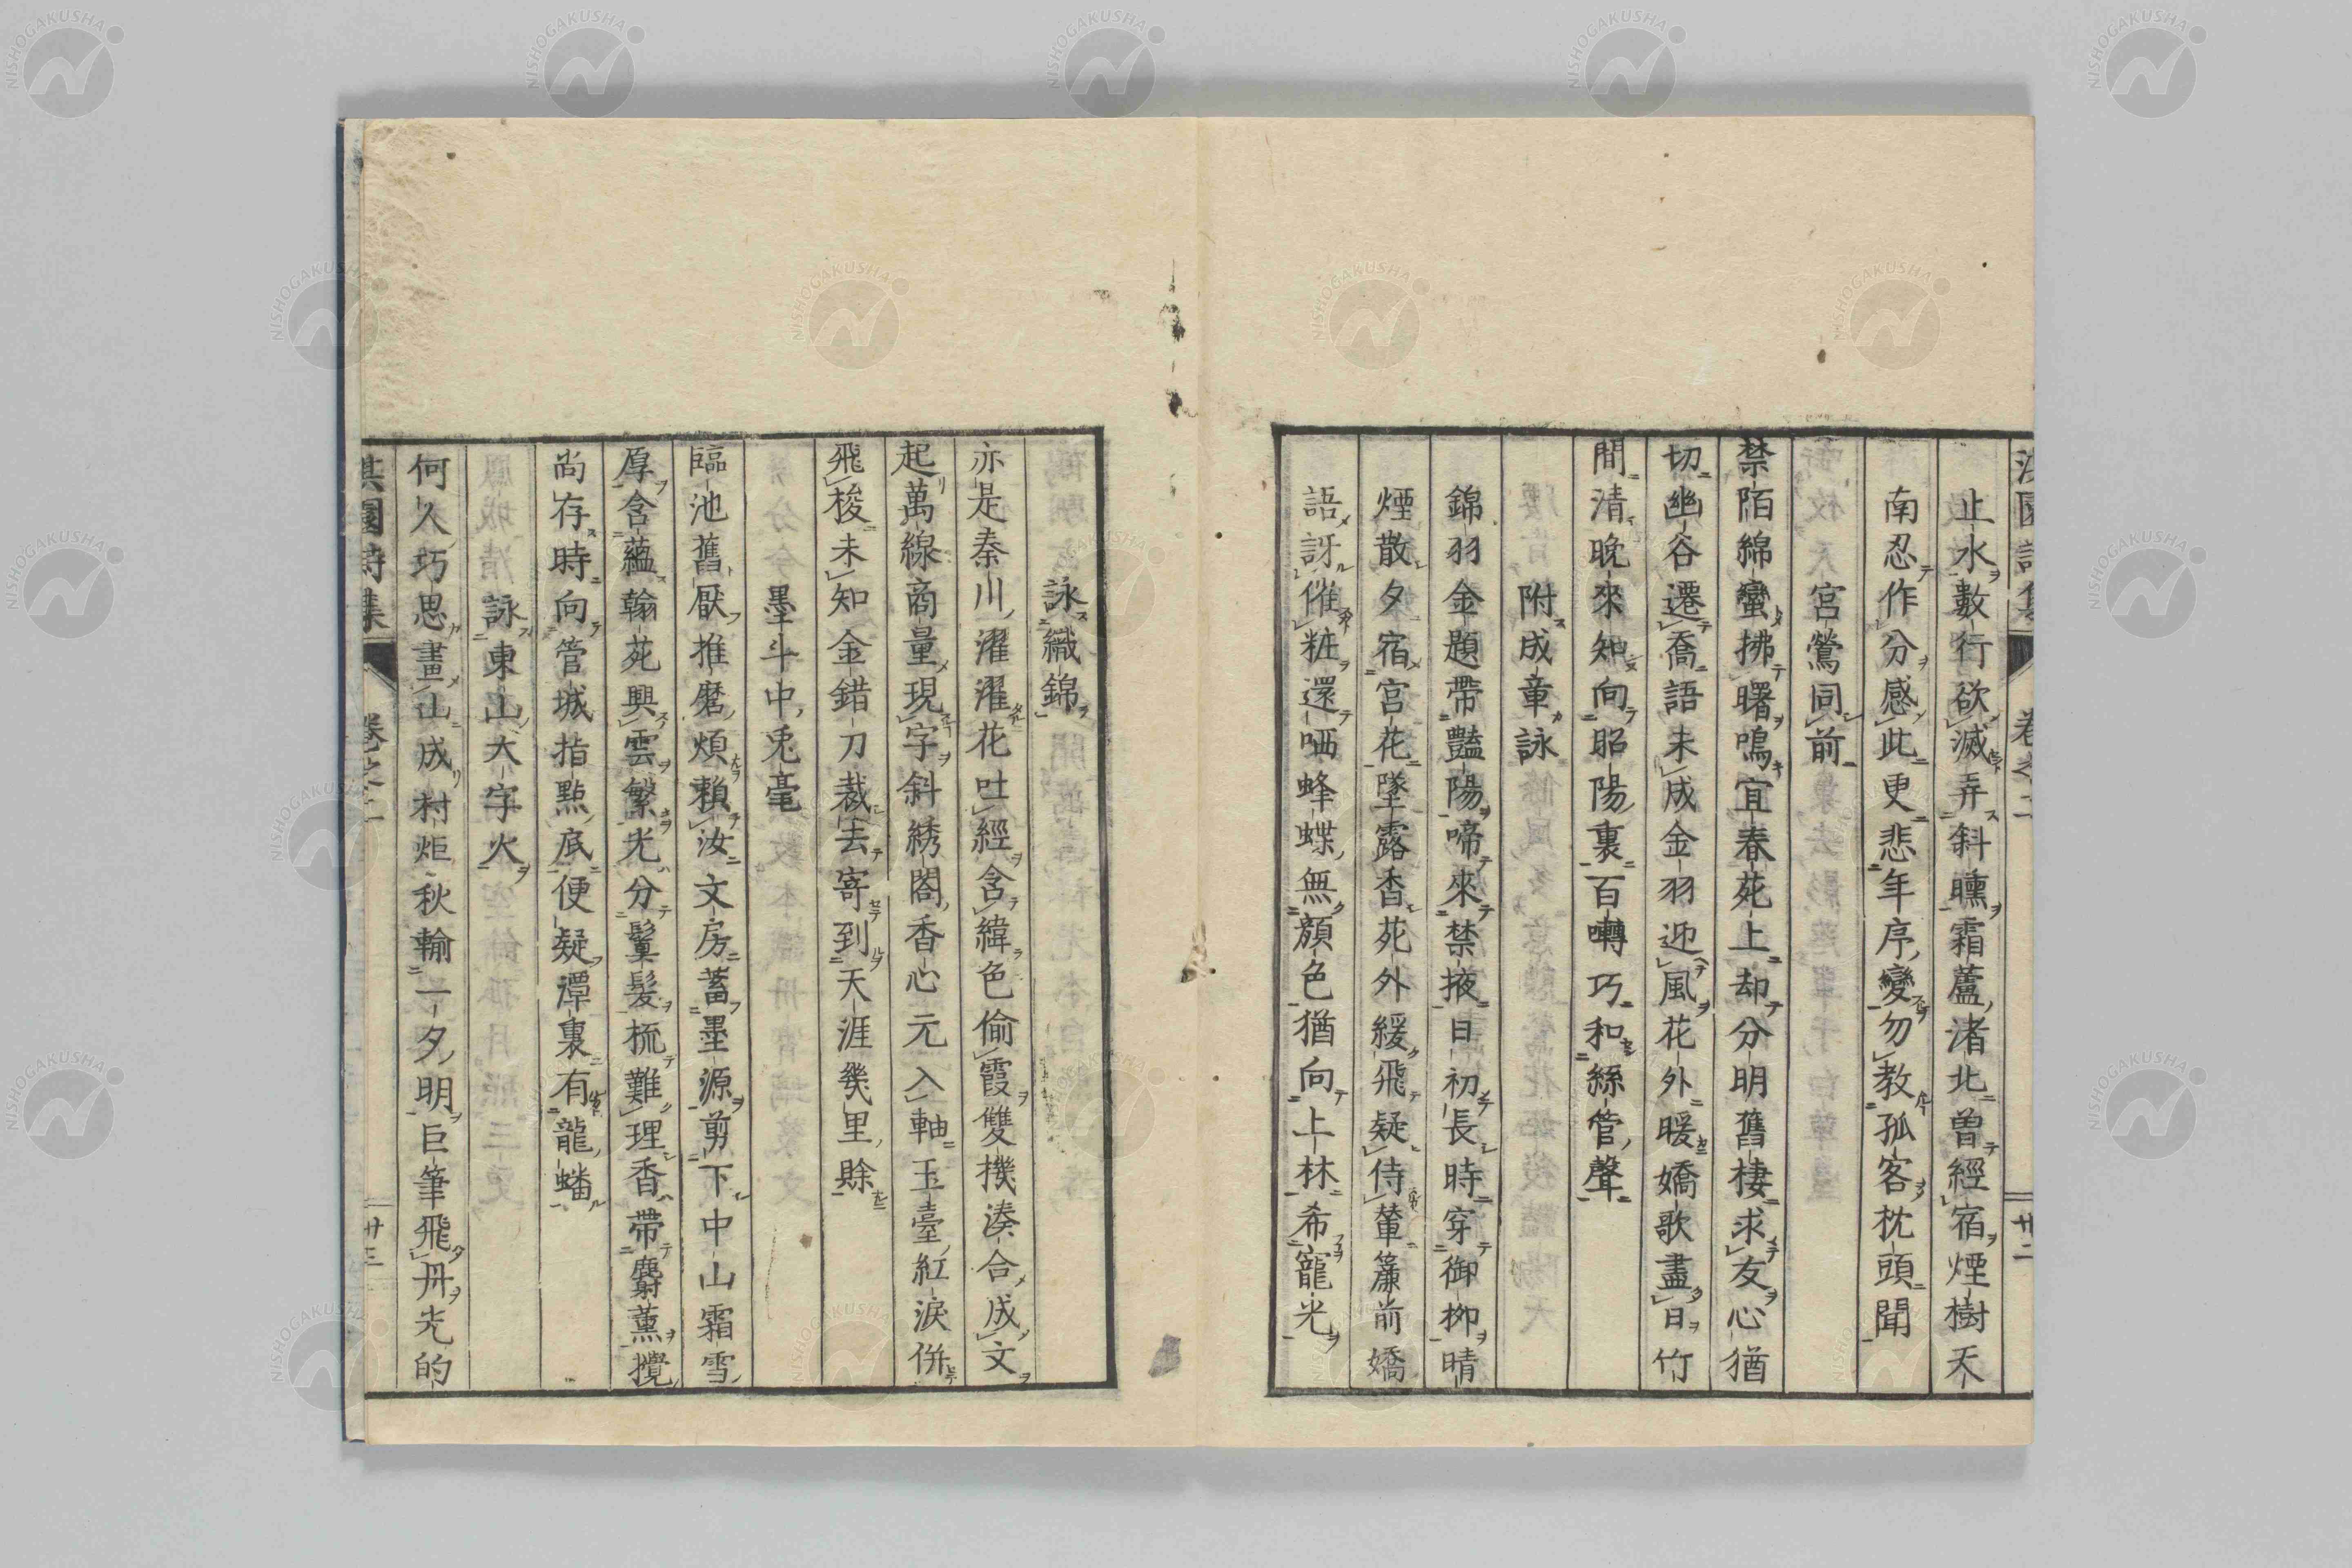 止水數行欲滅弄斜曛霜蘆渚北曾經宿煙樹天
南忍作分感此更悲年序變勿教孤客枕頭聞
宮鶯同前
禁陌綿蠻拂曙鳴宜春苑上却分明舊棲求友心猶
切幽谷遷喬語未成金羽迎風花外暖嬌歌盡日竹
間清晚來知向昭陽裏百囀巧和絲管聲
附成章詠
錦羽金題帶豔陽啼來禁掖日初長時穿御柳晴
煙散夕宿宮花墜露香苑外緩飛疑侍輦簾前嬌
語訝催粧還哂蜂蝶無顏色猶向上林希寵光
卷之二
廿二
詠織錦
亦是秦川濯濯花吐經含緯色偷霞雙機湊合成文
起萬線商量現字斜綉閣香心元入軸玉臺紅淚併
飛梭未知金錯刀裁去寄到天涯幾里賖
墨斗中兎毫
臨池舊厭推磨煩賴汝文房蓄墨源剪下中山霜雪
厚含蘊翰苑興雲繁光分鬒髮梳難理香帶麝薰攪
尚存時向管城指點底便疑潭裏有龍蟠
詠東山大字火
何久巧思畫山成村炬秋輸一夕明巨筆飛丹光的
淇園詩集
卷之二
廿三
NISHOGAKUSHA